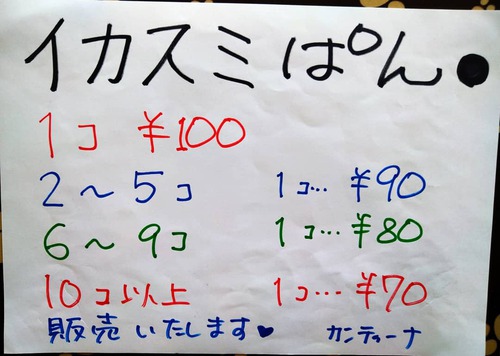 イカスミぱん●
1コ ¥100
2～5コ 1コ… ¥90
6～9コ 1コ… ¥80
10コ以上 1コ… ¥70
販売いたします♥ カンティーナ